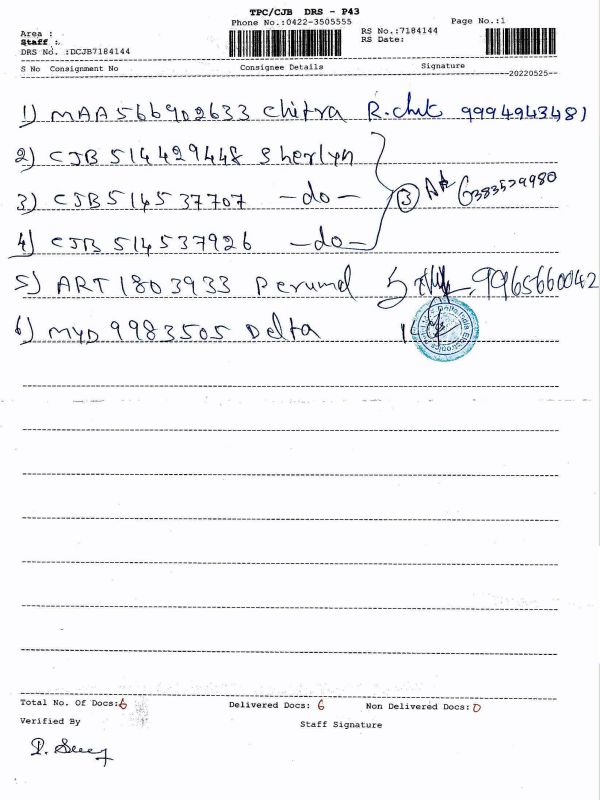 TPC/CJB DRS - P43
Phone No.:0422-3505555
Page No.:1
Area :
Staff :
DRS No. :DCJB7184144
RS No.:7184144
RS Date:
S No Consignment No Consignee Details Signature
20220525
1) MAA566902633 Chitra R.chit 9994943481
2) CJB 514429448 Sherlyn
3) CJB514537707 -do- 3 6383529980
4) CJB 514537926 -do-
5) ART 1803933 Perumal 5 9965660042
6) MYD 9983505 Delta
Total No. Of Docs:6 Delivered Docs: 6 Non Delivered Docs:0
Verified By Staff Signature